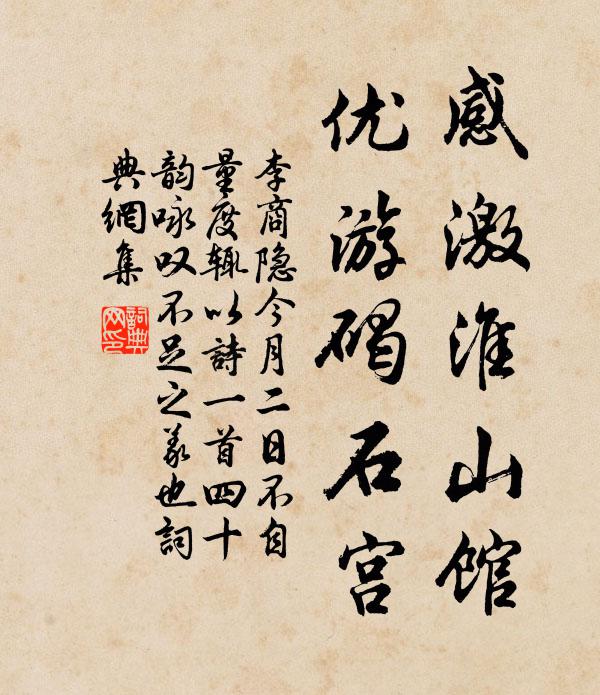 感激淮山馆
优游碣石宫
李商隐今月二日不自
量度辄以詩一首四十
韵咏叹不足之義也詞
典網集
詞典
网印